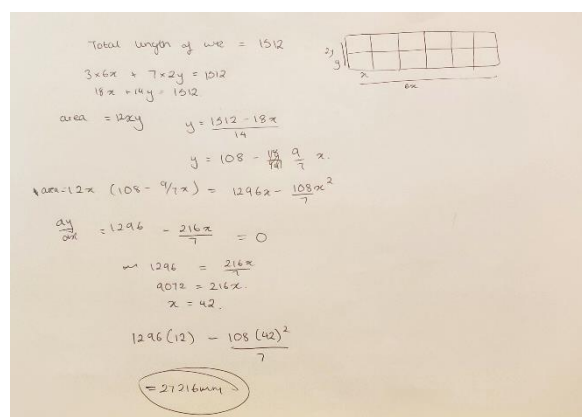 Total length of wire = 1512
3×6x + 7×2y = 1512
18x + 14y = 1512
area = 12xy
y = 1512 - 18x / 14
y = 108 - 9/7 x.
area = 12x (108 - 9/7x) = 1296x - 108x² / 7
dy/dx = 1296 - 216x/7 = 0
1296 = 216x/7
9072 = 216x.
x = 42.
1296(12) - 108(42)² / 7
= 27216mm
2y
y
x
6x